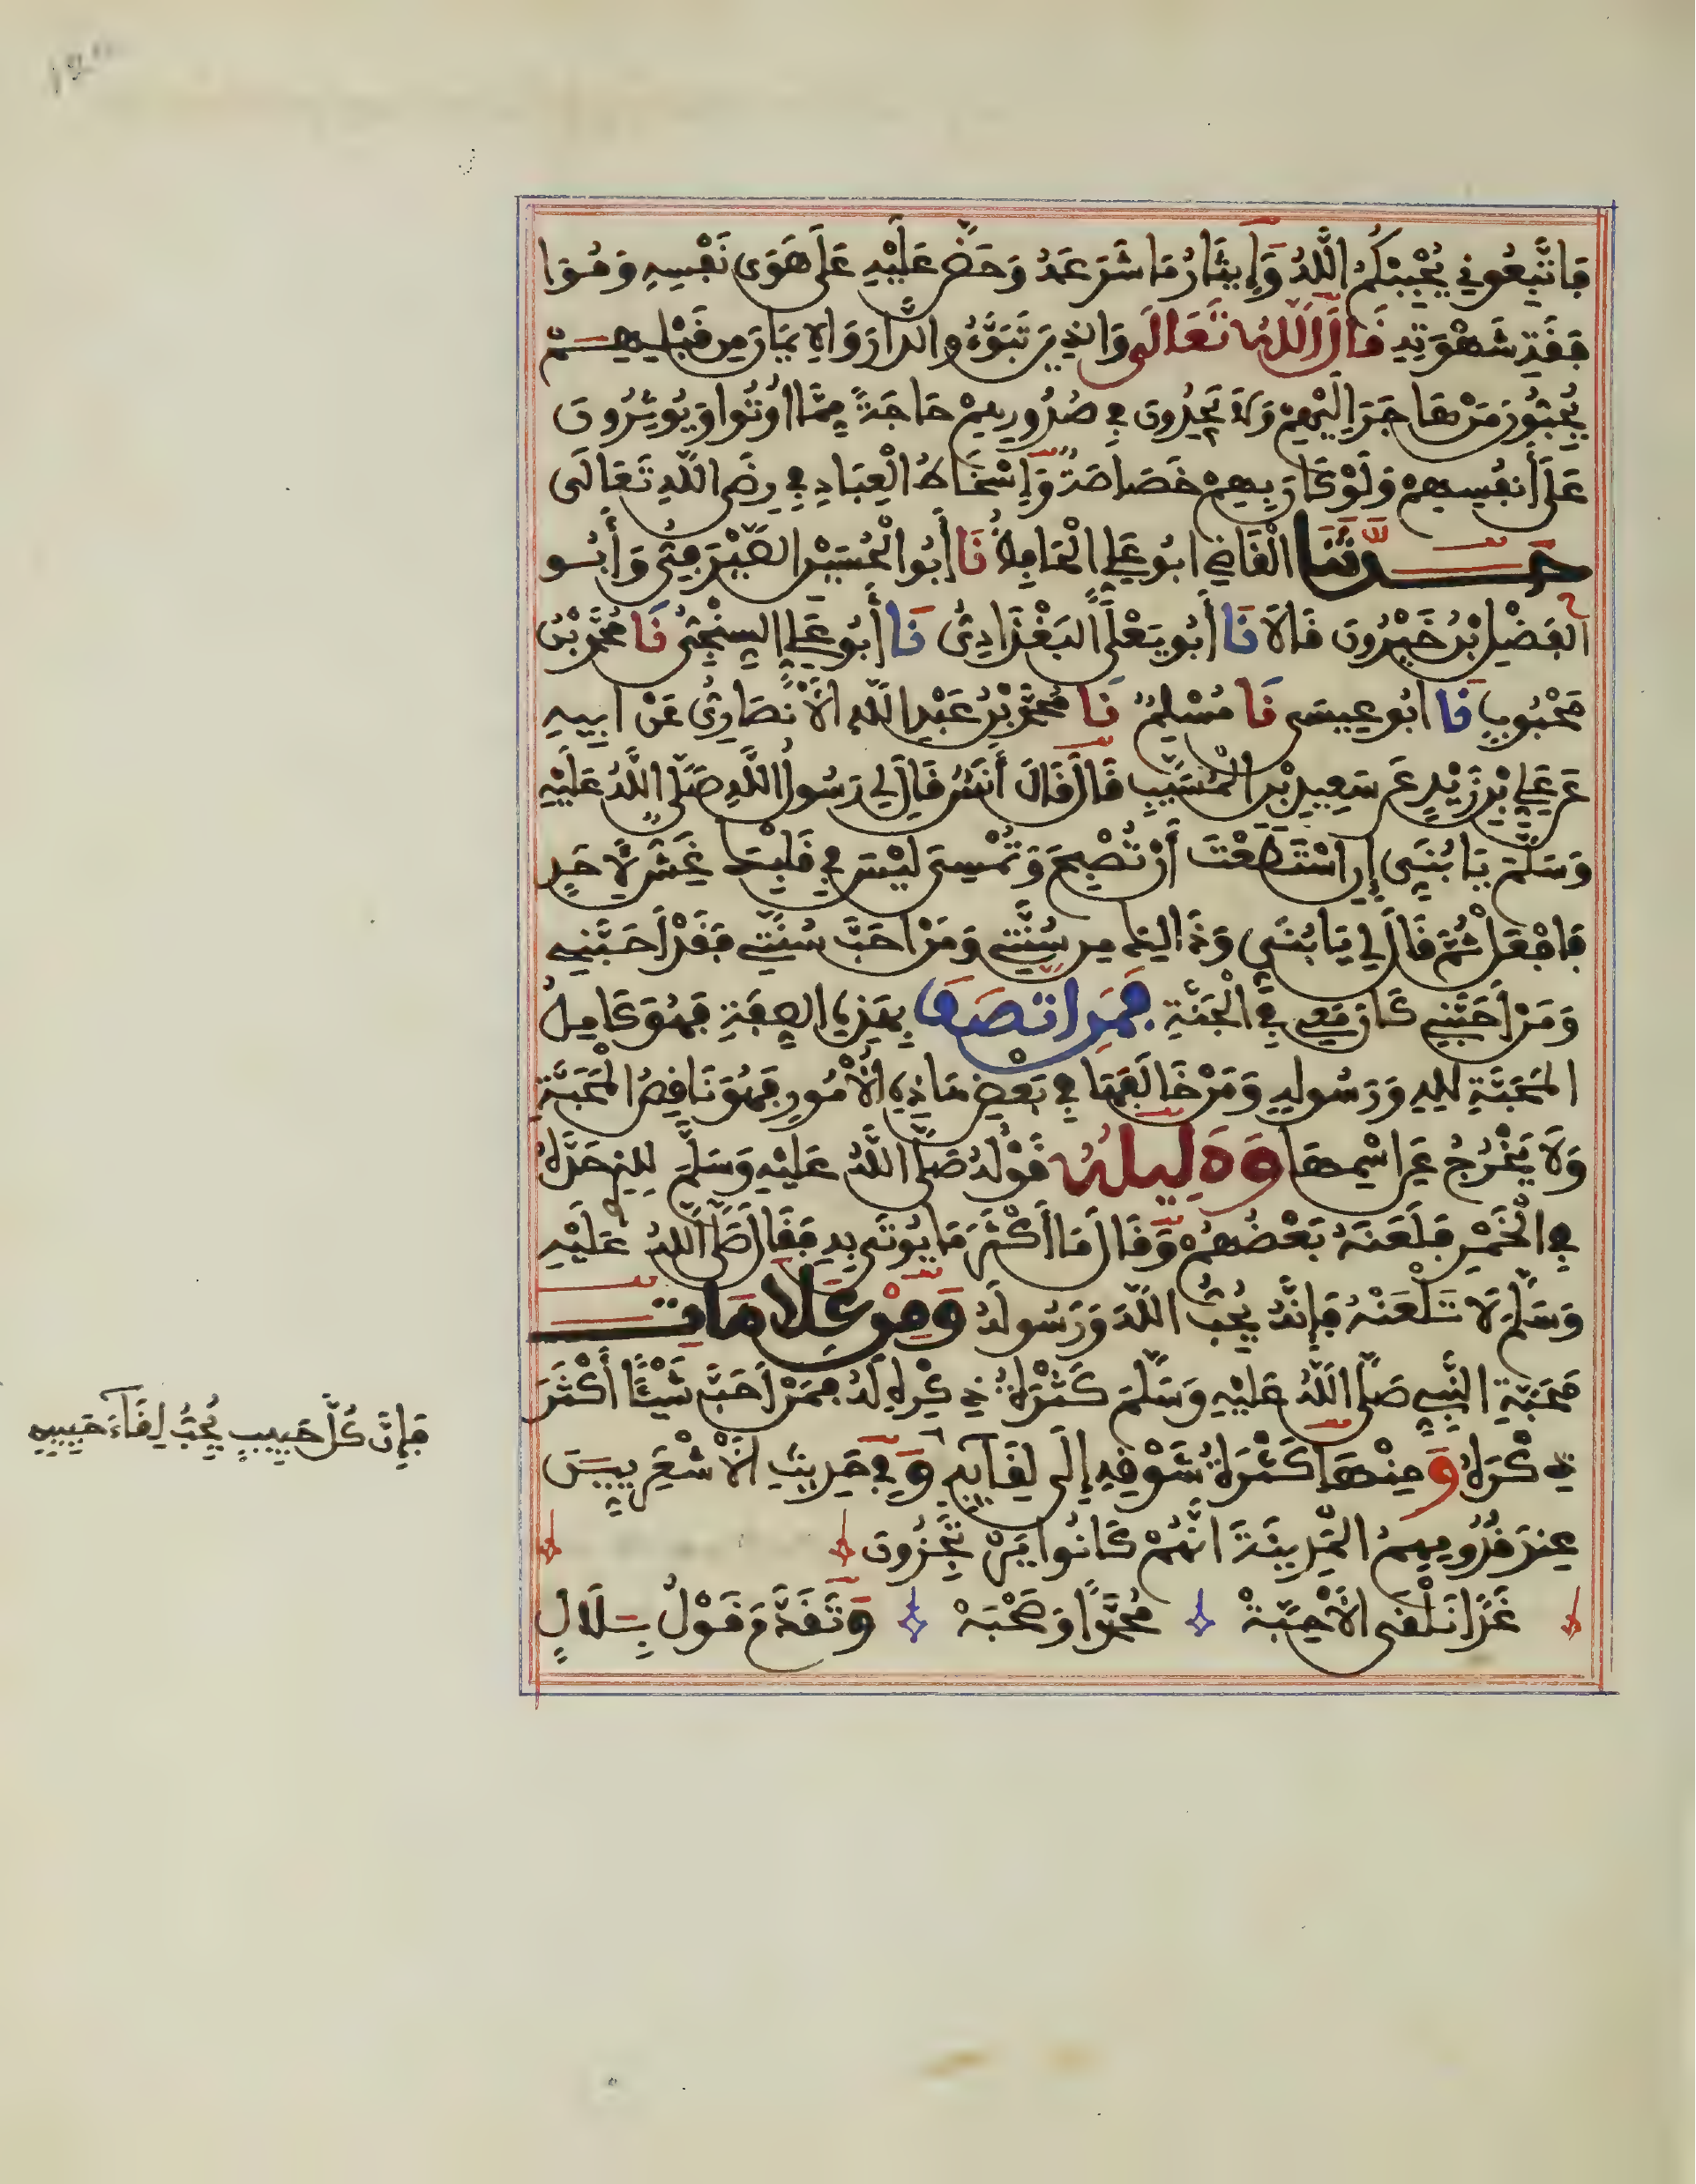 فَاتَّبِعُونِي يُحْبِبْكُمُ اللَّهُ وَإِيثَارُ مَا شَرَعَهُ وَحَضَّ عَلَيْهِ عَلَى هَوَى نَفْسِهِ وَمُوَا
فَقَةِ شَهْوَتِهِ قَالَ اللَّهُ تَعَالَى وَالذِينَ تَبَوَّءُو الدَّارَ وَالِايمَانَ مِن قَبْلِهِمْ
يُحِبُّونَ مَنْ هَاجَرَ إِلَيْهِمْ وَلَا يَجِدُونَ فِي صُدُورِهِمْ حَاجَةً مِمَّا أُوتُوا وَيُوثِرُونَ
عَلَى أَنفُسِهِمْ وَلَوْ كَانَ بِهِمْ خَصَاصَةٌ وَإِسْخَاطُ الْعِبَادِ فِي رِضَى اللَّهِ تَعَالَى
حَدَّثَنَا الْقَاضِي ابُو عَلِيٍّ الْحَافِظُ نَا أَبُو الْحُسَيْنِ الصَّيْرَفِيُّ وَأَبُو
الْفَضْلِ بْنُ خَيْرُونَ قَالَا نَا أَبُو يَعْلَى الْبَغْدَادِيُّ نَا أَبُو عَلِيٍّ السِّنْجِيُّ نَا مُحَمَّدُ بْنُ
مَحْبُوبٍ نَا ابُو عِيسَى نَا مُسْلِمٌ نَا مُحَمَّدُ بْنُ عَبْدِ اللَّهِ الْأَنْصَارِيُّ عَنْ ابِيهِ
عَنْ عَلِيِّ بْنِ زَيْدٍ عَنْ سَعِيدِ بْنِ الْمُسَيِّبِ قَالَ قَالَ أَنَسٌ قَالَ لِي رَسُولُ اللَّهِ صَلَّى اللَّهُ عَلَيْهِ
وَسَلَّمَ يَا بُنَيِّ إِنِ اسْتَطَعْتَ أَنْ تُصْبِحَ وَتُمْسِيَ لَيْسَ فِي قَلْبِكَ غِشٌّ لِأَحَدٍ
فَافْعَلْ ثُمَّ قَالَ لِي يَا بُنَيِّ وَذَالِكَ مِن سُنَّتِي وَمَنْ احَبَّ سُنَّتِي فَقَدْ أَحَبَّنِي
وَمَنْ أَحَبَّنِي كَانَ مَعِي فِي الْجَنَّةِ فَمَنِ اتَّصَفَ بِهَذِهِ الصِّفَةِ فَهُوَ كَامِلُ
الْمَحَبَّةِ لِلهِ وَرَسُولِهِ وَمَنْ خَالَفَهَا فِي بَعْضِ هَاذِهِ الْأُمُورِ فَهُوَ نَاقِصُ الْمَحَبَّةِ
وَلَا يَخْرُجُ عَنِ اسْمِهَا وَدَلِيلُهُ قَوْلُهُ صَلَّى اللَّهُ عَلَيْهِ وَسَلَّمَ لِلذِي حَدَّهُ
فِي الْخَمْرِ فَلَعَنَهُ بَعْضُهُمْ وَقَالَ مَا أَكْثَرَ مَا يُوتَى بِهِ فَقَالَ صَلَّى اللَّهُ عَلَيْهِ
وَسَلَّمَ لَا تَلْعَنْهُ فَإِنَّهُ يُحِبُّ اللَّهَ وَرَسُولَهُ وَمِنْ عَلَامَاتِ
مَحَبَّةِ النَّبِيِّ صَلَّى اللَّهُ عَلَيْهِ وَسَلَّمَ كَثْرَةُ ذِكْرِهِ لَهُ فَمَنْ أَحَبَّ شَيْئًا أَكْثَرَ
ذِكْرَهُ وَمِنْهَا كَثْرَةُ شَوْقِهِ إِلَى لِقَائِهِ وَفِي حَدِيثِ الْأَشْعَرِيِّينَ
عِندَ قُدُومِهِمُ الْمَدِينَةَ انَّهُمْ كَانُوا يَرْتَجِزُونَ
غَدًا نَلْقَى الْأَحِبَّةْ مُحَمَّدًا وَصَحْبَهْ وَتَقَدَّمَ قَوْلُ بِلَالٍ
فَإِنَّ كُلَّ حَبِيبٍ يُحِبُّ لِقَآءَ حَبِيبِهِ